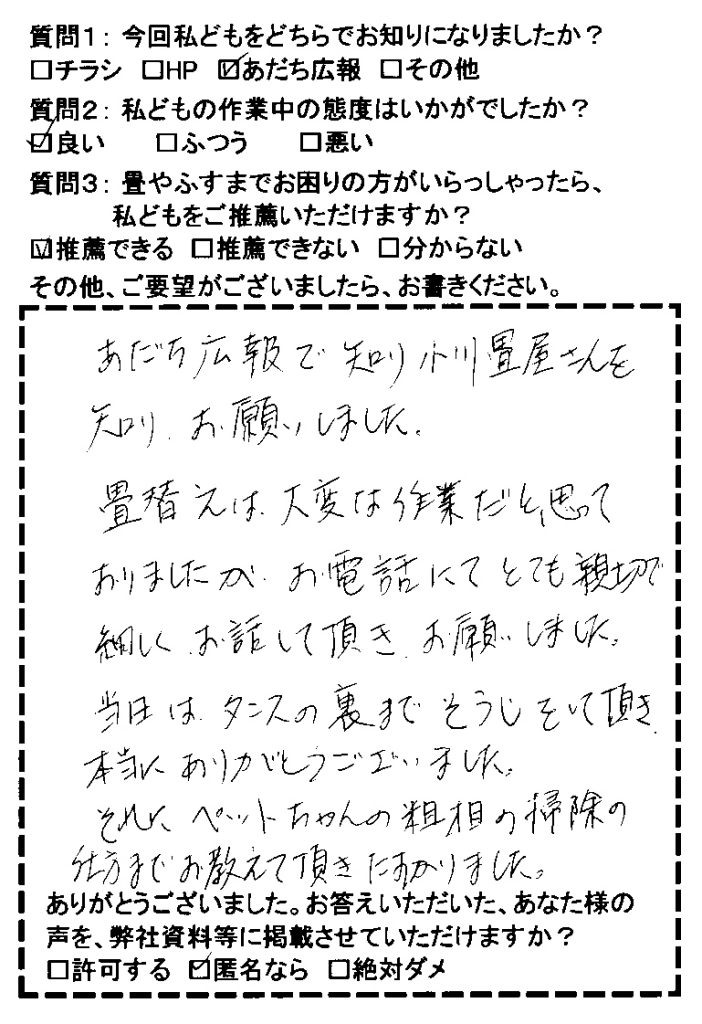 質問1：今回私どもをどちらでお知りになりましたか？
□チラシ □HP ☑あだち広報 □その他
質問2：私どもの作業中の態度はいかがでしたか？
☑良い □ふつう □悪い
質問3：畳やふすまでお困りの方がいらっしゃったら、
私どもをご推薦いただけますか？
☑推薦できる □推薦できない □分からない
その他、ご要望がございましたら、お書きください。
あだち広報で知り小川畳屋さんを
知り、お願いしました。
畳替えは、大変な作業だと、思って
おりましたが、お電話にてとても親切で
細しく、お話して頂き、お願いしました。
当日は、タンスの裏までそうじをして頂き、
本当にありがとうございました。
それに、ペットちゃんの粗相の掃除の
仕方までお教えて頂きたすかりました。
ありがとうございました。お答えいただいた、あなた様の
声を、弊社資料等に掲載させていただけますか？
□許可する ☑匿名なら □絶対ダメ